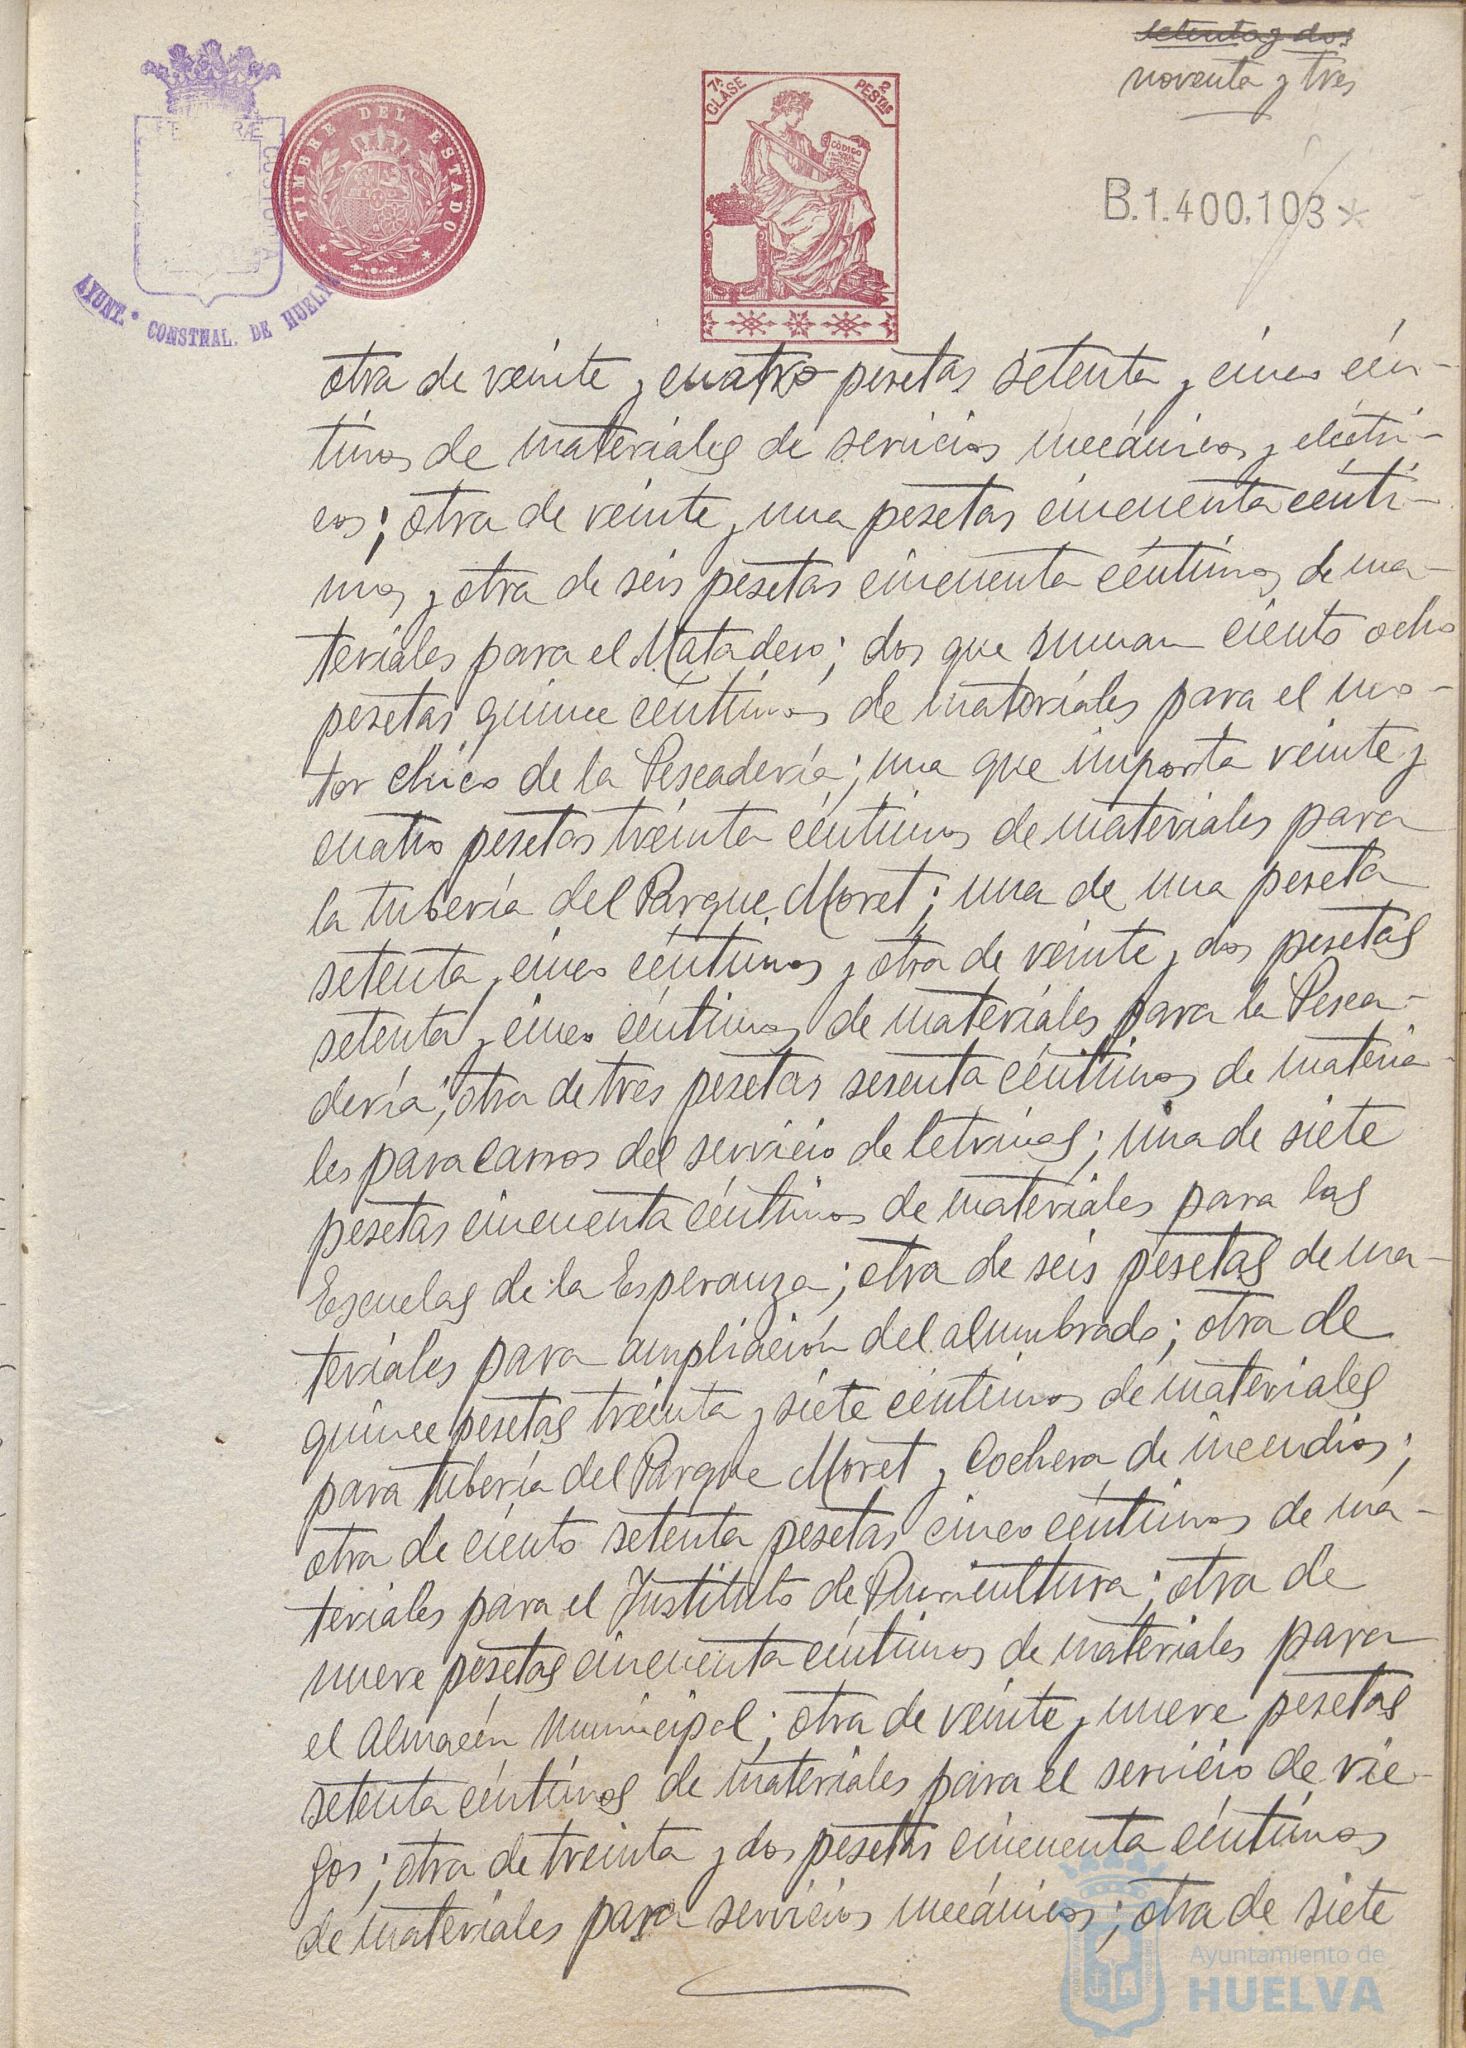 setenta y dos
noventa y tres
7ª CLASE
2 PESTAS
CÓDIGO
TIMBRE DEL ESTADO
B.1.400.103*
AYUNT.º CONSTNAL. DE HUELVA
otra de veinte y cuatro pesetas setenta y cinco cén-
timos de materiales de servicios mecánicos y eléctri-
cos; otra de veinte y una pesetas cincuenta cénti-
mos y otra de seis pesetas cincuenta céntimos de ma-
teriales para el Matadero; dos que suman ciento ocho
pesetas quince céntimos de materiales para el mo-
tor chico de la Pescadería; una que importa veinte y
cuatro pesetas treinta céntimos de materiales para
la tubería del Parque Moret; una de una peseta
setenta y cinco céntimos y otra de veinte y dos pesetas
setenta y cinco céntimos de materiales para la Pesca-
dería; otra de tres pesetas sesenta céntimos de materia-
les para carros del servicio de letrinas; una de siete
pesetas cincuenta céntimos de materiales para las
Escuelas de la Esperanza; otra de seis pesetas de ma-
teriales para ampliación del alumbrado; otra de
quince pesetas treinta y siete céntimos de materiales
para tubería del Parque Moret y Cochera de incendios;
otra de ciento setenta pesetas cinco céntimos de ma-
teriales para el Instituto de Puericultura; otra de
nueve pesetas cincuenta céntimos de materiales para
el Almacén Municipal; otra de veinte y nueve pesetas
setenta céntimos de materiales para el servicio de rie-
gos; otra de treinta y dos pesetas cincuenta céntimos
de materiales para servicios mecánicos; otra de siete
Ayuntamiento de
HUELVA